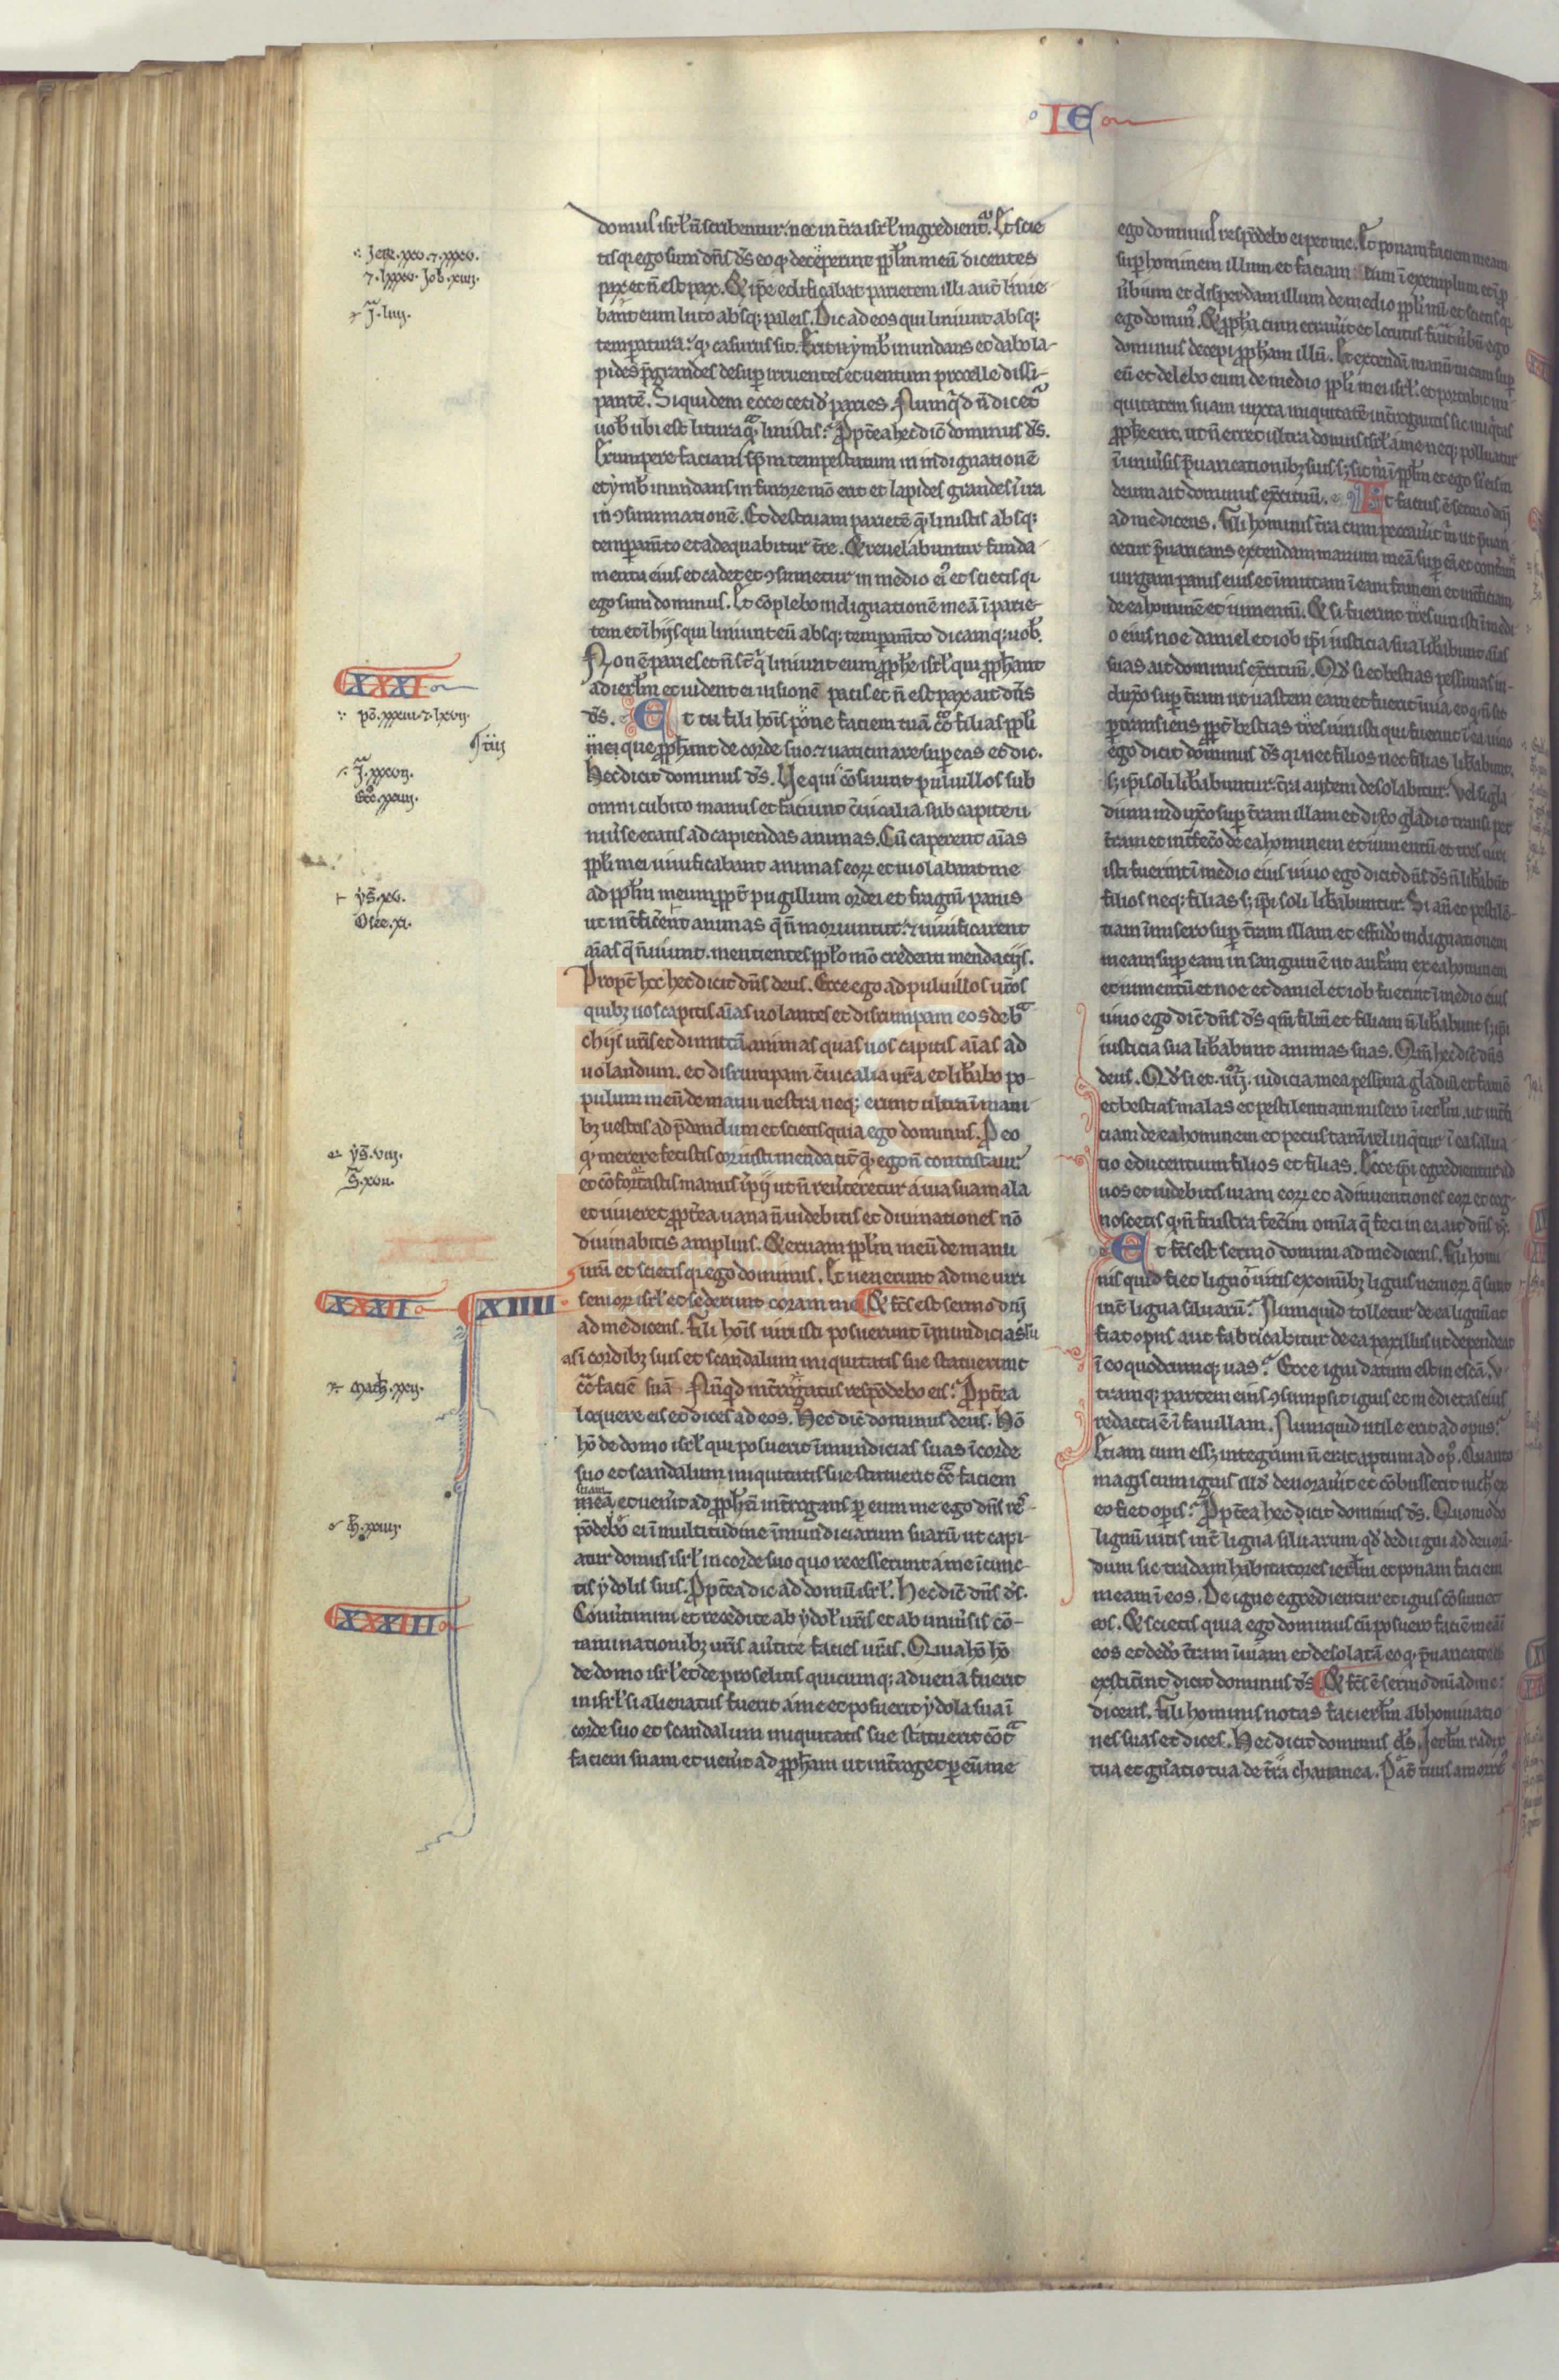 IE
Jere. xxv. 7. xxxv.
7. lxxxv. Job. xvii.
J. liiij.
XXXI
XXXII
XIIII
XXXIII
domus isrl' n̄ scribentur. nec in t̄ra isrl' ingredient̄. Et scie
tis q ego sum dn̄s ds̄ eo q deceperunt ppl'm meū dicentes
pax et n̄ est pax. Et ip̄e edificabat parietem illi aut̄ linie
bant eum luto absq; paleis. Dic ad eos qui liniunt absq;
temperatura. q casurus sit. Erit ymb' inundans et dabo la-
pides p̄grandes desup irruentes et uentum procelle dissi-
pantē. Siquidem ecce cecid' paries. Numq'd n̄ dicet̄
uob' ubi est litura quā linistis. Propt̄ea hec dic̄ dominus ds̄.
Erumpere faciam sp̄m tempestatum in indignationē
et ymb' inundans in furore mō erit et lapides grandes ī ira
in 9summationē. Et destruam parietē q linistis absq;
temperam̄to et adequabitur t̄re. Et reuelabuntur funda
menta eius et cadet et 9sumetur in medio ei' et scietis q
ego sum dominus. Et cōplebo indignationē meā ī parie-
tem et ī hijs qui liniunt eū absq; temperam̄to dicamq; uob'.
Non ē paries et n̄ s̄t q liniunt eum pphe isrl' qui pphant
ad ierl'm et uident ei uisionē pacis et n̄ est pax ait dn̄s
ds̄. Et tu fili hoīs pone faciem tuā cōt̄ filias ppl'i
mei que pphant de corde suo. 7 uaticinare super eas et dic.
Hec dicit dominus ds̄. Ue qui cōsuunt puluillos sub
omni cubito manus et faciunt c̄uicalia sub capite u
niu'se etatis ad capiendas animas. Cū caperent aīas
ppl'i mei uiuificabant animas eorꝝ et uiolabant me
ad ppl'm meum ppt̄ pugillum ordei et fragm̄ panis
ut int̄ficerent animas q n̄ moriuntur. 7 uiuificarent
aīas q n̄ uiuunt. mentientes ppl'o mō credenti mendacijs.
Propt̄ hec hec dicit dn̄s deus. Ecce ego ad puluillos ur̄os
quibꝫ uos capitis aīas uolantes et disrumpam eos de bra
chijs ur̄is et dimittā animas quas uos capitis aīas ad
uolandum. et disrumpam c̄uicalia ur̄a et lib'abo po-
pulum meū de manu uestra neq; erunt ultra ī mani
bꝫ uestris ad p̄dandum et scietis quia ego dominus. P eo
q merere fecistis cor iusti mendacit̄ quē ego n̄ contristaui
et cōfortastis manus īpij ut n̄ reu'teretur a uia sua mala
et uiueret ppt̄ea uana n̄ uidebitis et diuinationes nō
diuinabitis amplius. Et eruam ppl'm meū de manu
ur̄a et scietis q ego dominus. Et uenerunt ad me uiri
seniorꝝ isrl' et sederunt coram me Et fc̄s est sermo dn̄j
ad me dicens. Fili hoīs uiri isti posuerunt īmundicias su
as ī cordibꝫ suis et scandalum iniquitatis sue statuerunt
cōt̄ faciē suā. Nūq'd int̄rogatus respōdebo eis. Propt̄ea
loquere eis et dices ad eos. Hec dic̄ dominus deus. Hō
hō de domo isrl' qui posuerit īmundicias suas ī corde
suo et scandalum iniquitatis sue statuerit cōt̄ faciem
suam
meā et uen'it ad pph'am int̄rogans p eum me ego dn̄s res-
pōdebo ei ī multitudine īmundiciarum suarū ut capi-
atur domus isrl' in corde suo quo recesserunt a me ī cunc-
tis ydolis suis. Propt̄ea dic ad domū isrl'. Hec dic̄ dn̄s ds̄.
Conu'timini et recedite ab ydol' ur̄is et ab uniu'sis cō-
taminationibꝫ ur̄is au'tite facies ur̄as. Quia hō hō
de domo isrl' et de proselitis quicumq; aduena fuerit
in isrl' si alienatus fuerit a me et posuerit ydola sua ī
corde suo et scandalum iniquitatis sue statuerit cōt̄
faciem suam et uen'it ad pph'am ut int̄roget p eū me
ego dominus respōdebo ei per me. Et ponam faciem meam
sup hominem illum et faciam eum ī exemplum et ī p
u'bium et disperdam illum de medio ppl'i mei et scietis q
ego domin'. Et ppha cum errau'it et locutus fu'it u'bū ego
dominus decepi pph'am illū. Et extendā manū meam sup
eū et delebo eum de medio ppl'i mei isrl'. et portabit ini-
quitatem suam iuxta iniquitatē int̄rogantis sic iniq'tas
pphe erit. ut n̄ erret ultra domus isrl' a me neq; polluatur
ī uniu'sis p̄uaricationibꝫ suis sꝫ sit m ī ppl'm et ego sī eis in
deum ait dominus exc̄ituū. Et factus ē sermo dn̄j
ad me dicens. Fili hominis t̄ra cum peccau'it m ut p̄uari
cetur p̄uaricans extendam manum meā sup eā et cont̄am
uirgam panis eius et īmittam ī eam famem et int̄ficiam
de ea hominē et iumentū. Et si fuerint tres uiri isti ī medi
o eius noe daniel et iob ip̄i iusticia sua lib'abunt aīas
suas ait dominus exc̄ituū. Qd' si et bestias pessimas in-
duxero sup t̄ram ut uastem eam et fuerit īuia eo q n̄ sit
ptransiens ppt̄ bestias tres uiri isti qui fuerint ī ea uiuo
ego dicit dominus ds̄ q nec filios nec filias lib'abunt.
sꝫ ip̄i soli lib'abuntur. t̄ra autem desolabitur. Vel si gla
dium induxero sup t̄ram illam et dix'o gladio transi per
t̄ram et int̄fec'o de ea hominem et iumentū et tres uiri
isti fuerint ī medio eius uiuo ego dicit dn̄s ds̄ n̄ lib'abunt
filios neq; filias sꝫ ip̄i soli lib'abuntur. Si aū et pestilē-
tiam īmisero sup t̄ram illam et effud'o indignationem
meam sup eam in sanguine ut auferam ex ea hominem
et iumentū et noe et daniel et iob fuerint ī medio eius
uiuo ego dic̄ dn̄s ds̄ qm̄ filiū et filiam n̄ lib'abunt sꝫ ip̄i
iusticia sua lib'abunt animas suas. Qm̄ hec dic̄ dn̄s
deus. Qd' si et .iiij. iudicia mea pessima gladiū et famē
et bestias malas et pestilentiam misero ī ierl'm ut int̄fi
ciam de ea hominem et pecus tam̄ relinq̄tur ī ea salua
tio educentium filios et filias. Ecce ip̄i egredientur ad
uos et uidebitis uiam eorꝝ et adinuentiones eorꝝ et cog-
noscetis q n̄ frustra fec'im omīa q feci in ea ait dn̄s ds̄.
Et fc̄s est sermo domini ad me dicens. Fili homi
nis quid fiet ligno uitis ex omībꝫ lignis nemorꝝ q sunt
int̄ ligna siluarū. Numquid tolletur de ea lignū ut
fiat opus aut fabricabitur de ea paxillus ut dependeat
ī eo quodcumq; uas. Ecce igni datum est in escā. U
tramq; partem eius 9sumpsit ignis et medietas eius
redacta ē ī fauillam. Numquid utile erit ad opus.
Etiam cum essꝫ integrum n̄ erat aptum ad op'. Quanto
magis cum ignis illud deuorau'it et cōbusserit nich' ex
eo fiet operis. Propt̄ea hec dicit dominus ds̄. Quomodo
lignū uitis int̄ ligna siluarum qd' dedi igni ad deuoran-
dum sic tradam habitatores ierl'm et ponam faciem
meam ī eos. De igne egredientur et ignis cōsumet
eos. Et scietis quia ego dominus cū posuero faciē meā ī
eos et ded'o t̄ram īuiam et desolatā eo q p̄uaricatores
exstit'int dicit dominus ds̄ Et fc̄s ē sermo dn̄i ad me
dicens. Fili hominis notas fac ierl'm abhominatio
nes suas et dices. Hec dicit dominus ds̄. Ierl'm radix
tua et gn̄atio tua de t̄ra chananea. Pat̄ tuus amorre'